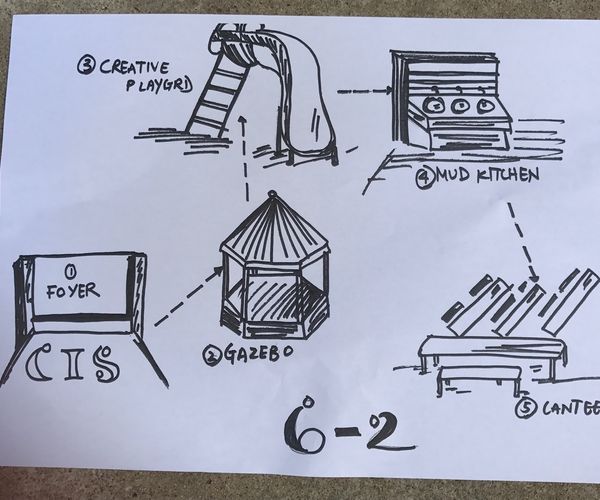 ③ CREATIVE
PLAYGRD
④ MUD KITCHEN
①
FOYER
CIS
② GAZEBO
⑤ CANTEE
6-2